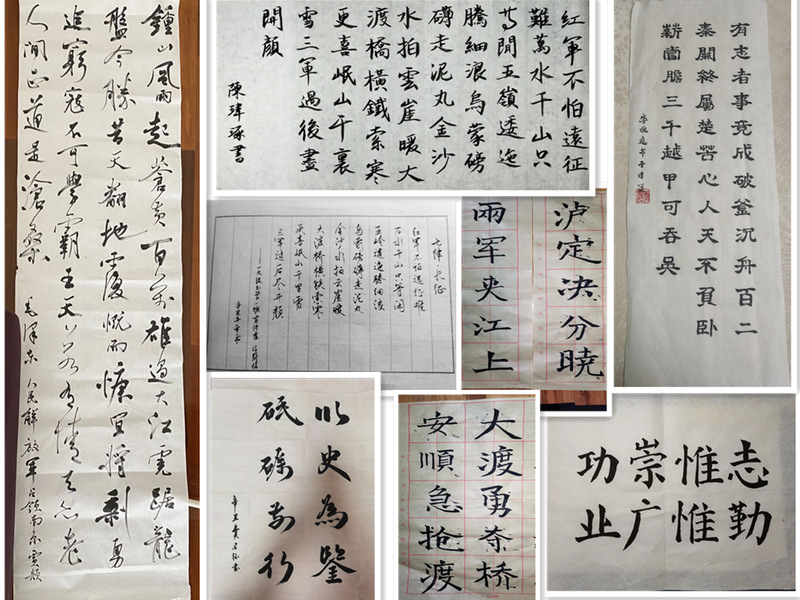 鍾山風雨起蒼黄百萬雄過大江虎踞龍
盤今勝昔天翻地覆慨而慷宜將剩勇
追窮寇不可學霸王天若有情天亦老
人間正道是滄桑
毛澤東 人民解放軍占領南京
紅軍不怕遠征
難萬水千山只
等閒五嶺逶迤
騰細浪烏蒙磅
礴走泥丸金沙
水拍雲崖暖大
渡橋橫鐵索寒
更喜岷山千裏
雪三軍過後盡
開顏
陳瑋琢書
有志者事竟成破釜沉舟百二
秦關終屬楚苦心人天不負卧
薪嘗膽三千越甲可吞吳
七律 长征
红军不怕远征难
万水千山只等闲
五岭逶迤腾细浪
乌蒙磅礴走泥丸
金沙水拍云崖暖
大渡桥横铁索寒
更喜岷山千里雪
三军过后尽开颜
泸定决分晓
兩军夹江上
以史為鑒
砥礪前行
大渡勇夺桥
安順急抢渡
功崇惟志
业广惟勤